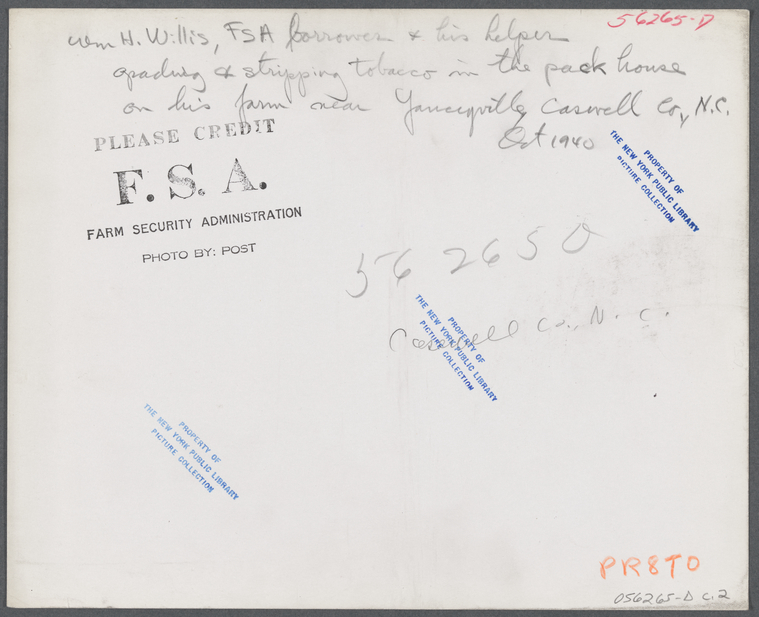 56265-D
Wm H. Willis, FSA borrower & his helper
grading & stripping tobacco in the pack house
on his farm near Yanceyville, Caswell Co, N.C.
Oct 1940
PLEASE CREDIT
F. S. A.
FARM SECURITY ADMINISTRATION
PHOTO BY: POST
PROPERTY OF
THE NEW YORK PUBLIC LIBRARY
PICTURE COLLECTION
56265 D
Caswell Co., N. C.
PROPERTY OF
THE NEW YORK PUBLIC LIBRARY
PICTURE COLLECTION
PROPERTY OF
THE NEW YORK PUBLIC LIBRARY
PICTURE COLLECTION
PR8TO
056265-D c.2